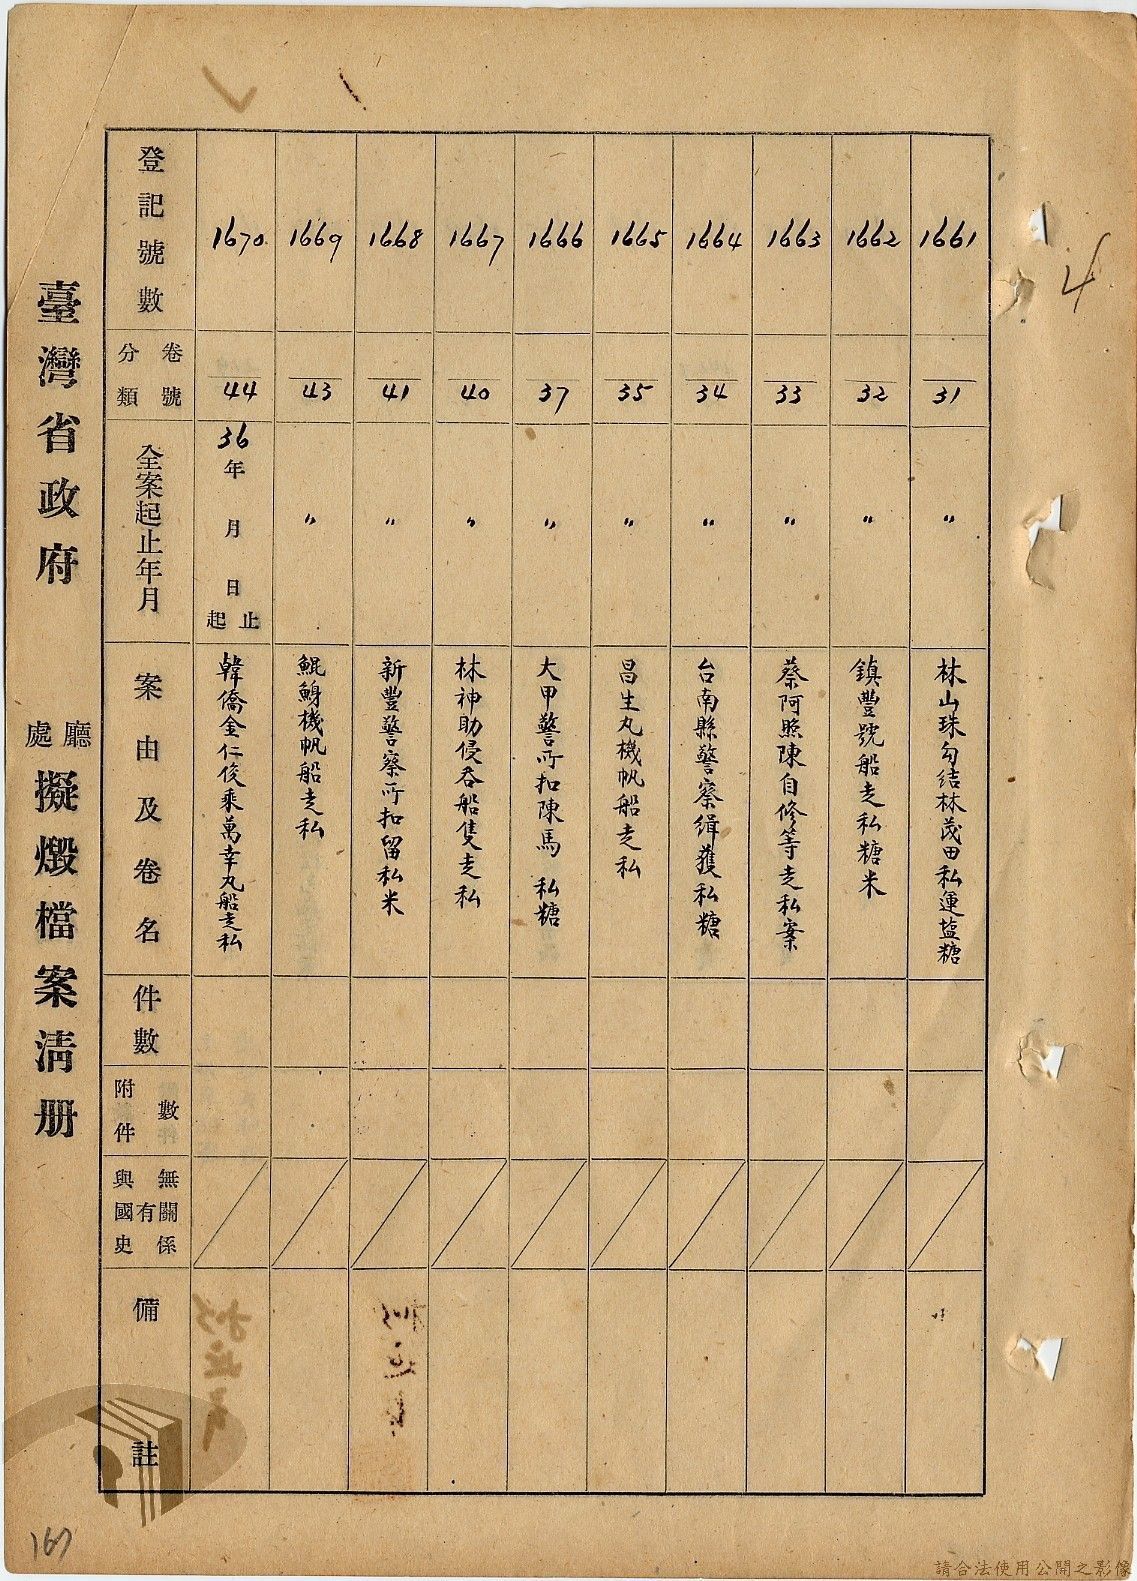 臺灣省政府 廳處 擬燬檔案淸册
登記號數
分類 卷號
全案起止年月
案由及卷名
件數
附件 數
與國史 有 無關係
備註
1670
44
36年 月 日 起止
韓僑金仁俊乘萬幸丸船走私
1669
43
〃
鯤鯓機帆船走私
1668
41
〃
新豐警察所扣留私米
1667
40
〃
林神助侵吞船隻走私
1666
37
〃
大甲警所扣陳馬 私糖
1665
35
〃
昌生丸機帆船走私
1664
34
〃
台南縣警察緝獲私糖
1663
33
〃
蔡阿照陳自修等走私案
1662
32
〃
鎮豐號船走私糖米
1661
31
〃
林山珠勾結林茂田私運盐糖
4
167
請合法使用公開之影像